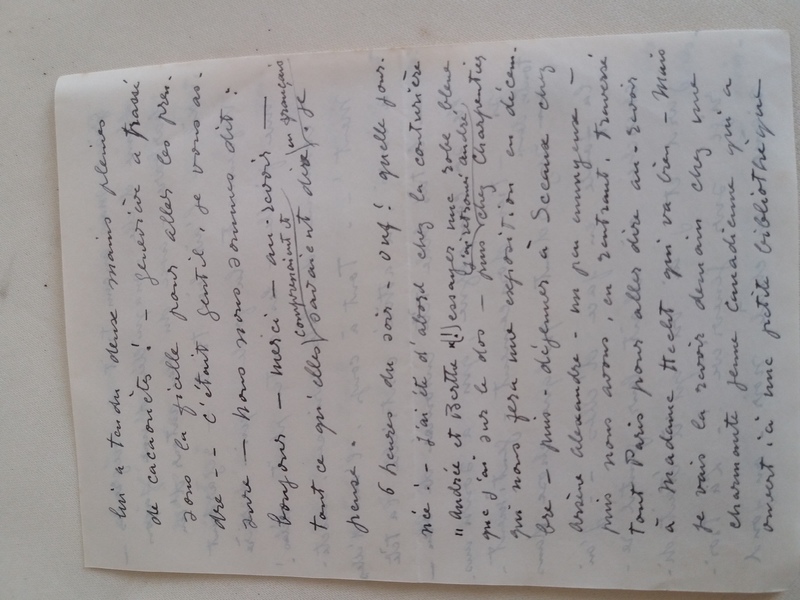 lui a tendu deux mains pleines
de cacahuètes ! - Geneviève a passé
sous la ficelle pour aller les pren-
dre - - c'était gentil, je vous as-
sure - nous nous sommes dit :
"bonjour - merci - au-revoir -
comprenaient et
tout ce qu'elles savaient dire en français, je
pense.
6 heures du soir - ouf ! quelle jour-
née ! - j'ai été d'abord chez la couturière
"Andrée et Berthe" (!) essayer une robe bleue
j'ai retrouvé André
que j'ai sur le dos - puis chez Charpentier
qui nous fera une exposition en décem-
bre - puis - déjeuner à Sceaux chez
Arsène Alexandre - un peu ennuyeux -
puis nous avons, en rentrant, traversé
tout Paris pour aller dire au-revoir
à Madame Hecht qui va bien - Mais
je vais la revoir demain chez une
charmante jeune Canadienne qui a
ouvert ici une petite bibliothèque